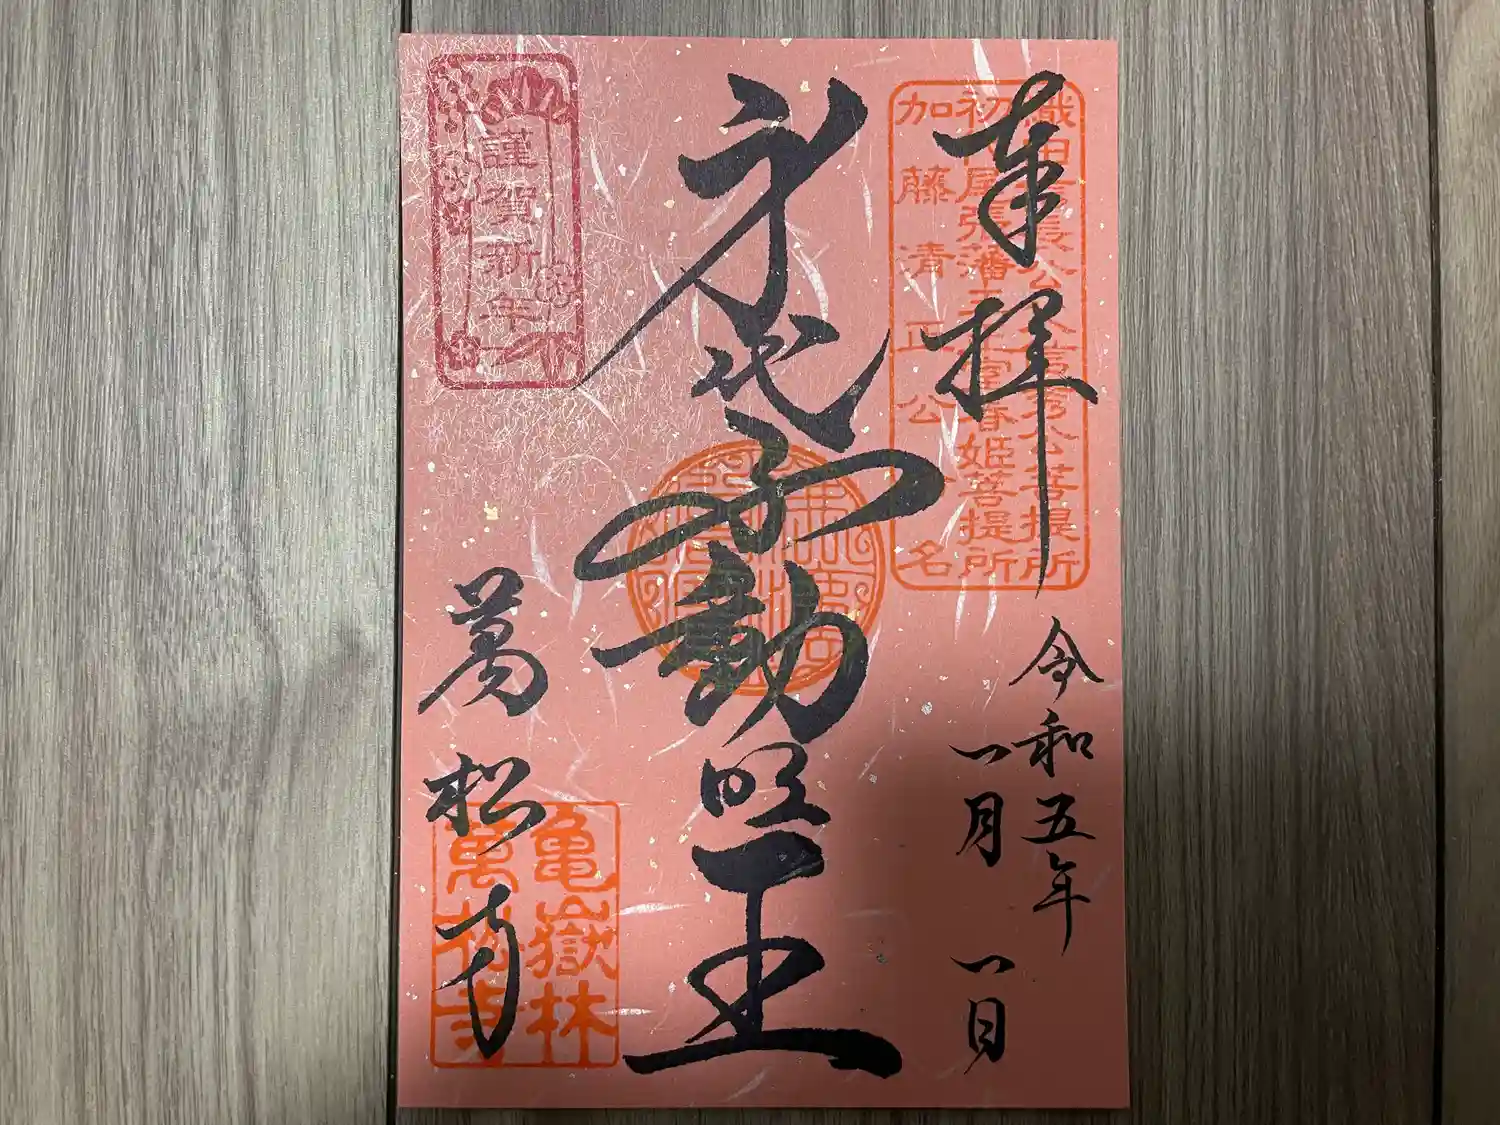 奉拝
織田信長公父信秀公菩提所
初代尾張藩主正室春姫菩提所
加藤清正公 名
令和五年
一月一日
身代不動明王
謹賀新年
萬松寺
亀嶽林
萬松寺